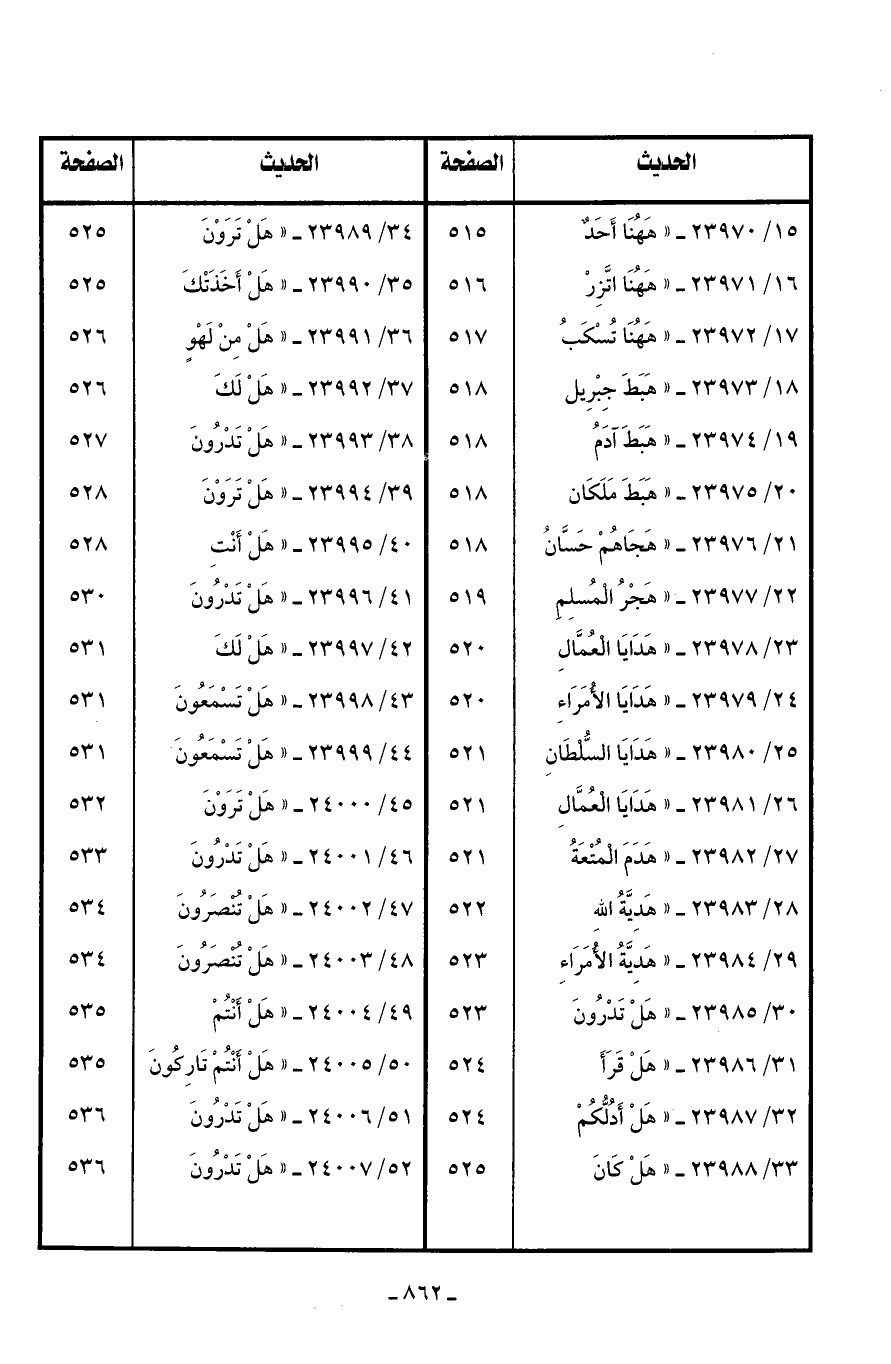 الحديث الصفحة الحديث الصفحة
١٥/ ٢٣٩٧٠ ـ « هَهُنَا أَحَدٌ ٥١٥ ٣٤/ ٢٣٩٨٩ ـ « هَلْ تَرَوْنَ ٥٢٥
١٦/ ٢٣٩٧١ ـ « هَهُنَا اتَّزِرْ ٥١٦ ٣٥/ ٢٣٩٩٠ ـ « هَلْ أَخَذَتْكَ ٥٢٥
١٧/ ٢٣٩٧٢ ـ « هَهُنَا تُسْكَبُ ٥١٧ ٣٦/ ٢٣٩٩١ ـ « هَلْ مِنْ لَهْوٍ ٥٢٦
١٨/ ٢٣٩٧٣ ـ « هَبَطَ جِبْرِيل ٥١٨ ٣٧/ ٢٣٩٩٢ ـ « هَلْ لَكَ ٥٢٦
١٩/ ٢٣٩٧٤ ـ « هَبَطَ آدَمُ ٥١٨ ٣٨/ ٢٣٩٩٣ ـ « هَلْ تَدْرُونَ ٥٢٧
٢٠/ ٢٣٩٧٥ ـ « هَبَطَ مَلَكَان ٥١٨ ٣٩/ ٢٣٩٩٤ ـ « هَلْ تَرَوْنَ ٥٢٨
٢١/ ٢٣٩٧٦ ـ « هَجَاهُمْ حَسَّانُ ٥١٨ ٤٠/ ٢٣٩٩٥ ـ « هَلْ أَنْتِ ٥٢٨
٢٢/ ٢٣٩٧٧ ـ « هَجْرُ الْمُسلِمِ ٥١٩ ٤١/ ٢٣٩٩٦ ـ « هَلْ تَدْرُونَ ٥٣٠
٢٣/ ٢٣٩٧٨ ـ « هَدَايَا الْعُمَّالِ ٥٢٠ ٤٢/ ٢٣٩٩٧ ـ « هَلْ لَكَ ٥٣١
٢٤/ ٢٣٩٧٩ ـ « هَدَايَا الأُمَرَاءِ ٥٢٠ ٤٣/ ٢٣٩٩٨ ـ « هَلْ تَسْمَعُونَ ٥٣١
٢٥/ ٢٣٩٨٠ ـ « هَدَايَا السُّلْطَانِ ٥٢١ ٤٤/ ٢٣٩٩٩ ـ « هَلْ تَسْمَعُونَ ٥٣١
٢٦/ ٢٣٩٨١ ـ « هَدَايَا الْعُمَّالِ ٥٢١ ٤٥/ ٢٤٠٠٠ ـ « هَلْ تَرَوْنَ ٥٣٢
٢٧/ ٢٣٩٨٢ ـ « هَدَمَ الْمُتْعَةُ ٥٢١ ٤٦/ ٢٤٠٠١ ـ « هَلْ تَدْرُونَ ٥٣٣
٢٨/ ٢٣٩٨٣ ـ « هَدِيَّةُ اللهِ ٥٢٢ ٤٧/ ٢٤٠٠٢ ـ « هَلْ تُنْصَرُونَ ٥٣٤
٢٩/ ٢٣٩٨٤ ـ « هَدِيَّةُ الأُمَرَاءِ ٥٢٣ ٤٨/ ٢٤٠٠٣ ـ « هَلْ تُنْصَرُونَ ٥٣٤
٣٠/ ٢٣٩٨٥ ـ « هَلْ تَدْرُونَ ٥٢٣ ٤٩/ ٢٤٠٠٤ ـ « هَلْ أَنْتُمْ ٥٣٥
٣١/ ٢٣٩٨٦ ـ « هَلْ قَرَأَ ٥٢٤ ٥٠/ ٢٤٠٠٥ ـ « هَلْ أَنْتُمْ تَارِكُونَ ٥٣٥
٣٢/ ٢٣٩٨٧ ـ « هَلْ أَدُلُّكُمْ ٥٢٤ ٥١/ ٢٤٠٠٦ ـ « هَلْ تَدْرُونَ ٥٣٦
٣٣/ ٢٣٩٨٨ ـ « هَلْ كَانَ ٥٢٥ ٥٢/ ٢٤٠٠٧ ـ « هَلْ تَدْرُونَ ٥٣٦
ـ ٨٦٢ ـ